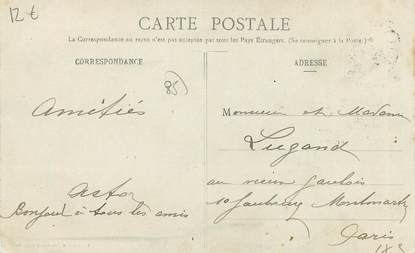 12 €
CARTE POSTALE
La Correspondance au recto n'est pas acceptée par tous les Pays Étrangers. (Se renseigner à la Poste.)
CORRESPONDANCE
ADRESSE
85
Amitiés
Monsieur et Madame
Lugand
au vieux Gaulois
Astor
10 faubourg Montmartre
Bonjour à tous les amis
Paris
IX e